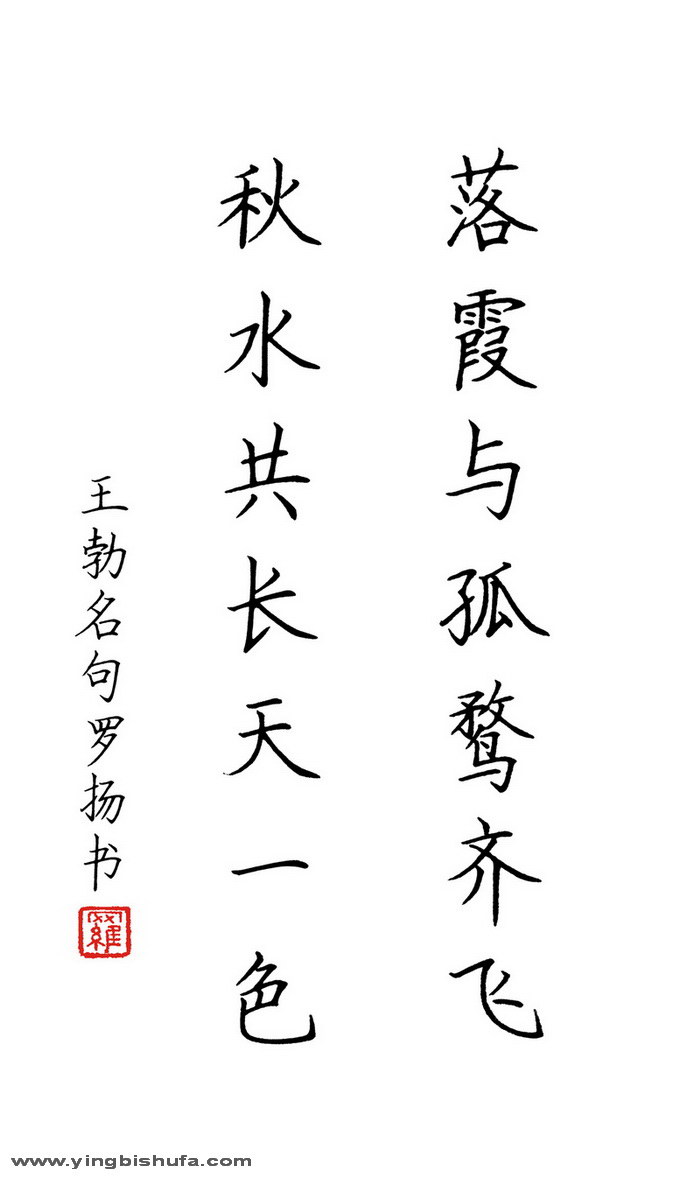 落霞与孤鹜齐飞
秋水共长天一色
王勃名句罗扬书
羅
www.yingbishufa.com